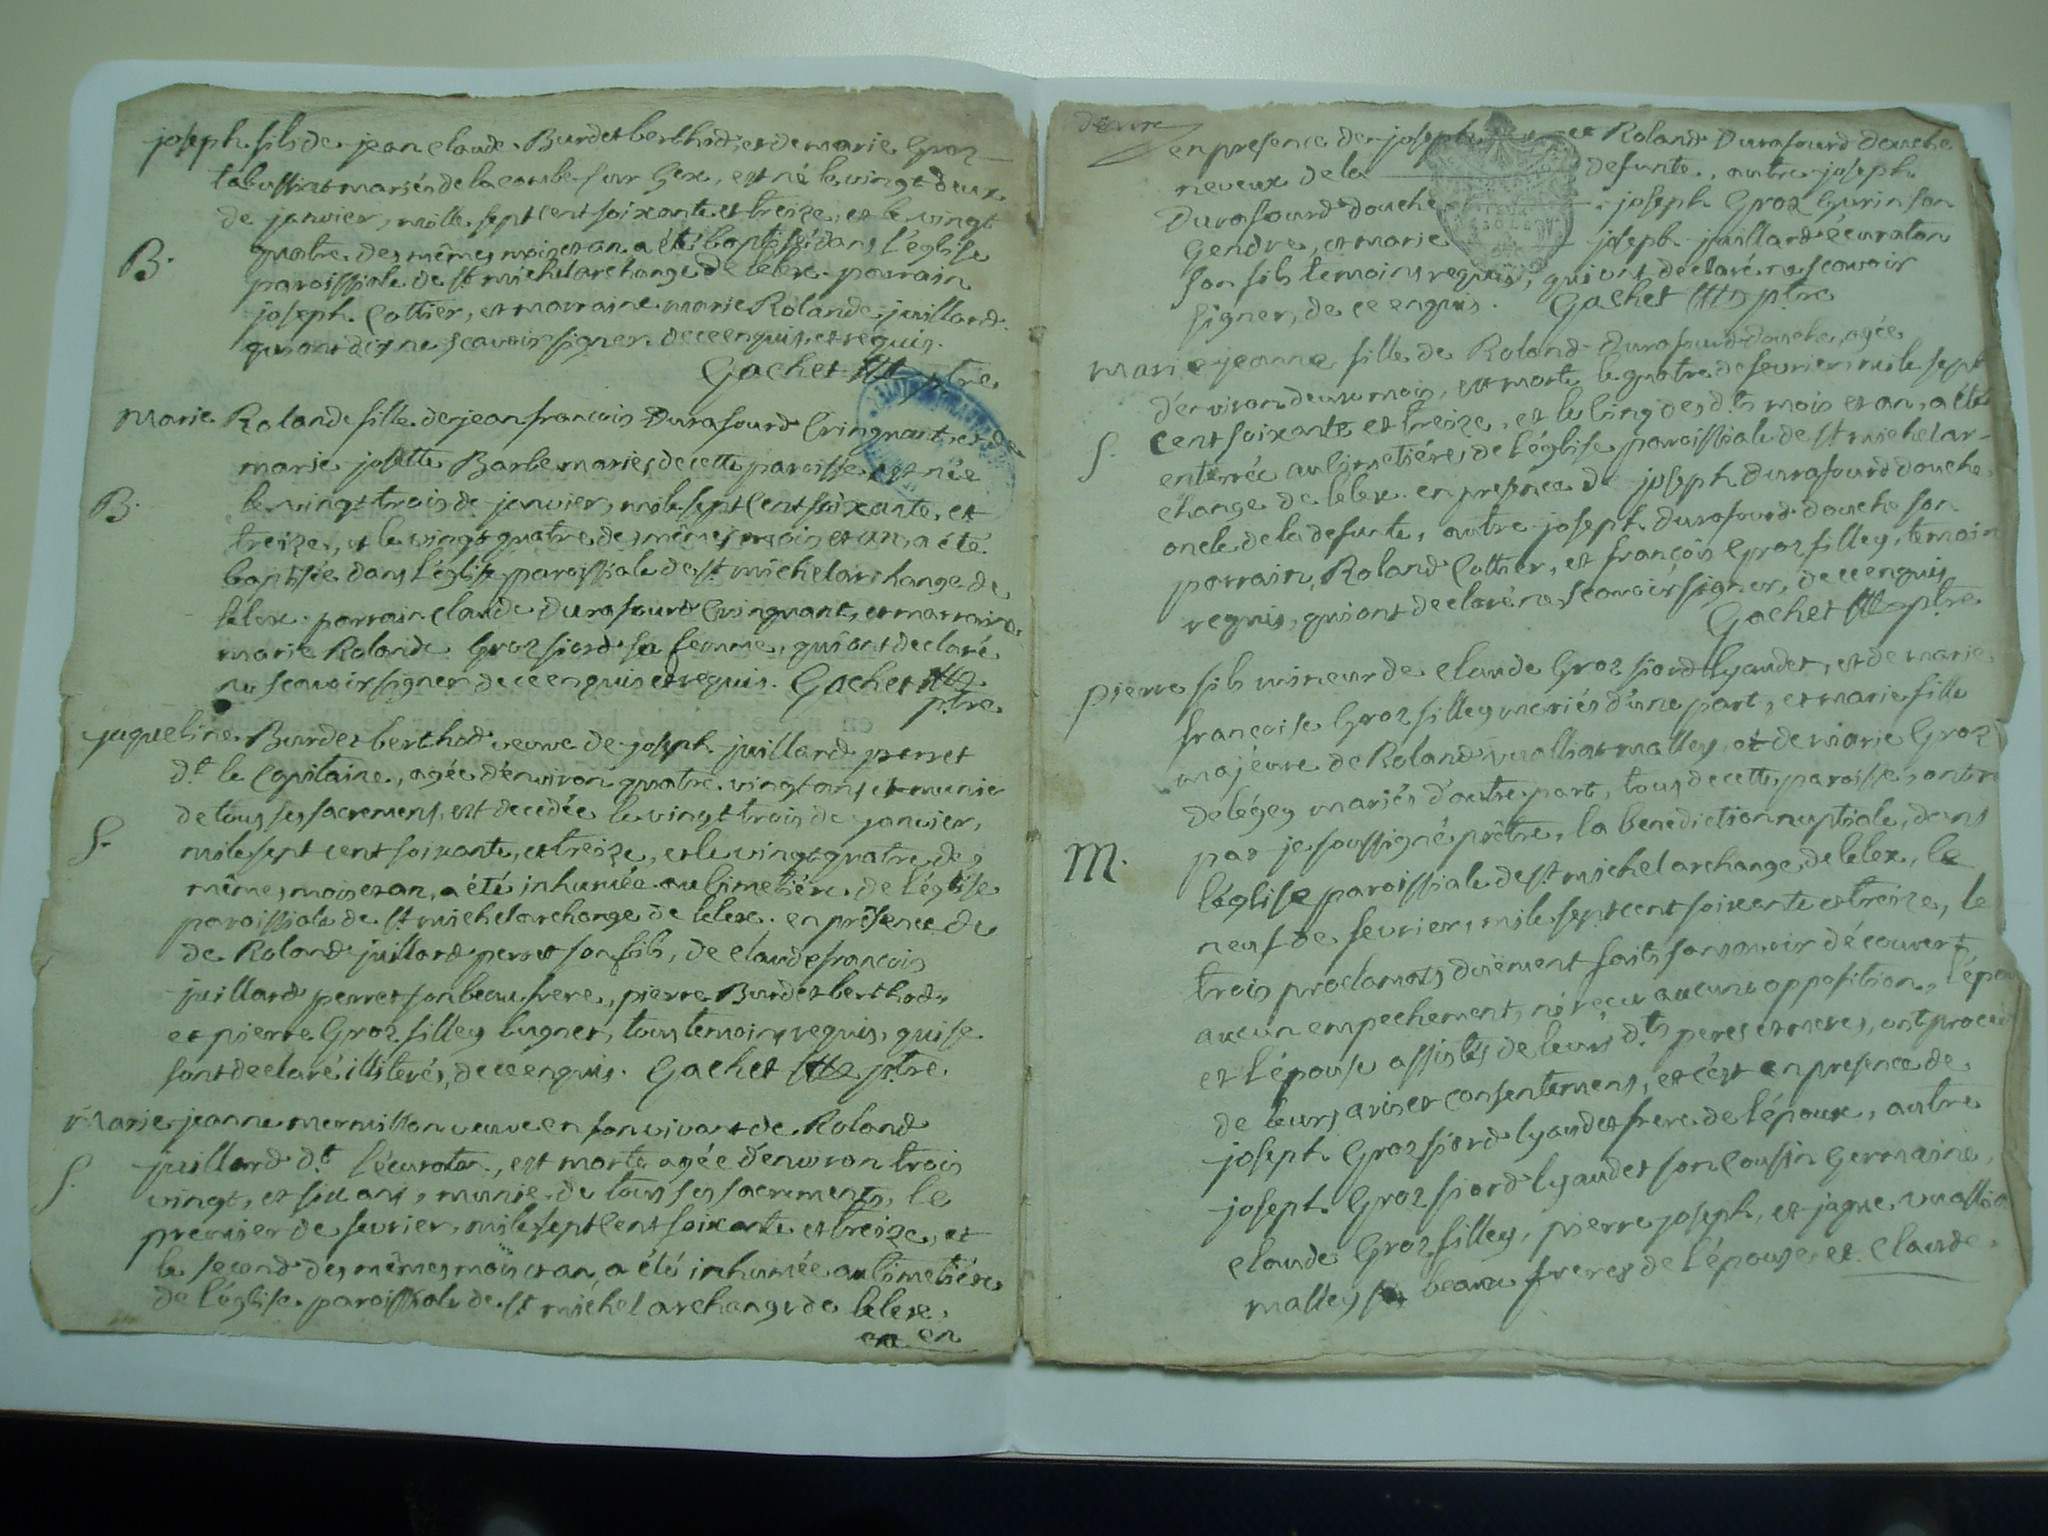 joseph fils de jean claude Burdet berthod, et de marie Groz
tabussiat mariés de la combe sur Gex, est né le vingt deux
de janvier, mille sept cent soixante et treize, et le vingt
quatre des mêmes mois et an a été baptisé dans l'église
B.
paroissiale de st michel archange de lelex. parrain
joseph Cottier, et marraine marie Rolande juillard
qui ont dit ne scavoir signer de ce enquis, et requis.
Gachet ptre
Marie Rolande fille de jean francois Durafourd Cringuant, et de
marie josette Barbe mariés de cette paroisse est née
B.
le vingt trois de janvier, mile sept cent soixante, et
treize, et le vingt quatre des mêmes mois et an a été
baptisée dans l'église paroissiale de st michel archange de
lelex. parrain claude Durafourd Cringuant, et marraine
marie Rolande Groz fiord sa femme, qui ont declaré
ne scavoir signer de ce enquis et requis. Gachet
ptre
jaqueline Burdet berthod veuve de joseph juillard perret
dt le Capitaine, agée d'environ quatre vingt ans et munie
de tous ses sacremens, est decedée le vingt trois de janvier,
S.
mile sept cent soixante, et treize, et le vingt quatre des
mêmes mois et an, a été inhumée au Cimetière de l'église
paroissiale de st michel archange de lelex. en présence de
de Roland juillard perret son fils, de claude francois
juillard perret son beau frere, pierre Burdet berthod,
et pierre Groz filley lugnet, tous temoins requis, qui se
sont declaré illiterés, de ce enquis. Gachet ptre
Marie jeanne mermillon veuve en son vivant de Roland
juillard dt l'écuraton, est morte agée d'environ trois
S.
vingt, et six ans, munie de tous ses sacrements, le
premier de fevrier, mile sept cent soixante et treize, et
le second des mêmes mois et an, a été inhumée au Cimetière
de l'église paroissiale de st michel archange de lelex,
en en
en presence de joseph et Roland Durafourd douche
neveux de la defunte, autre joseph
Durafourd douche joseph Groz Gurin son
Gendre, et marie joseph juillard écuraton
son fils temoins requis, qui ont declaré ne scavoir
signer, de ce enquis. Gachet ptre
Marie jeanne fille de Roland Durafourd douche, agée
d'environ deux mois, est morte le quatre de fevrier mile sept
S.
cent soixante et treize, et le cinq des dts mois et an, a été
enterrée au Cimetière de l'église paroissiale de st michel ar-
change de lelex. en presence de joseph Durafourd douche
oncle de la defunte, autre joseph durafourd douche son
parrain, Roland Cottier, et françois Groz filley, temoins
requis, qui ont declaré ne scavoir signer, de ce enquis
Gachet ptre
pierre fils mineur de claude Groz fiord lyaudet, et de marie
françoise Groz filley mariés d'une part, et marie fille
majeure de Roland malley, et de marie Groz
delégey mariés d'autre part, tous de cette paroisse, ont
M.
par je soussigné prêtre, la benediction nuptiale, dans
l'église paroissiale de st michel archange de lelex, le
neuf de fevrier, mile sept cent soixante et treize, le
trois proclamats duement faits sans avoir découvert
aucun empechement, ni reçu aucune opposition, l'époux
et l'épouse assistés de leurs dts peres et meres, ont procedé
de leurs avis et consentemens, et c'est en presence de
joseph Groz fiord lyaudet frere de l'époux, autre
joseph Groz fiord lyaudet son Cousin Germain,
claude Groz filley, pierre joseph, et jaque
malley beaux freres de l'épouse, et claude